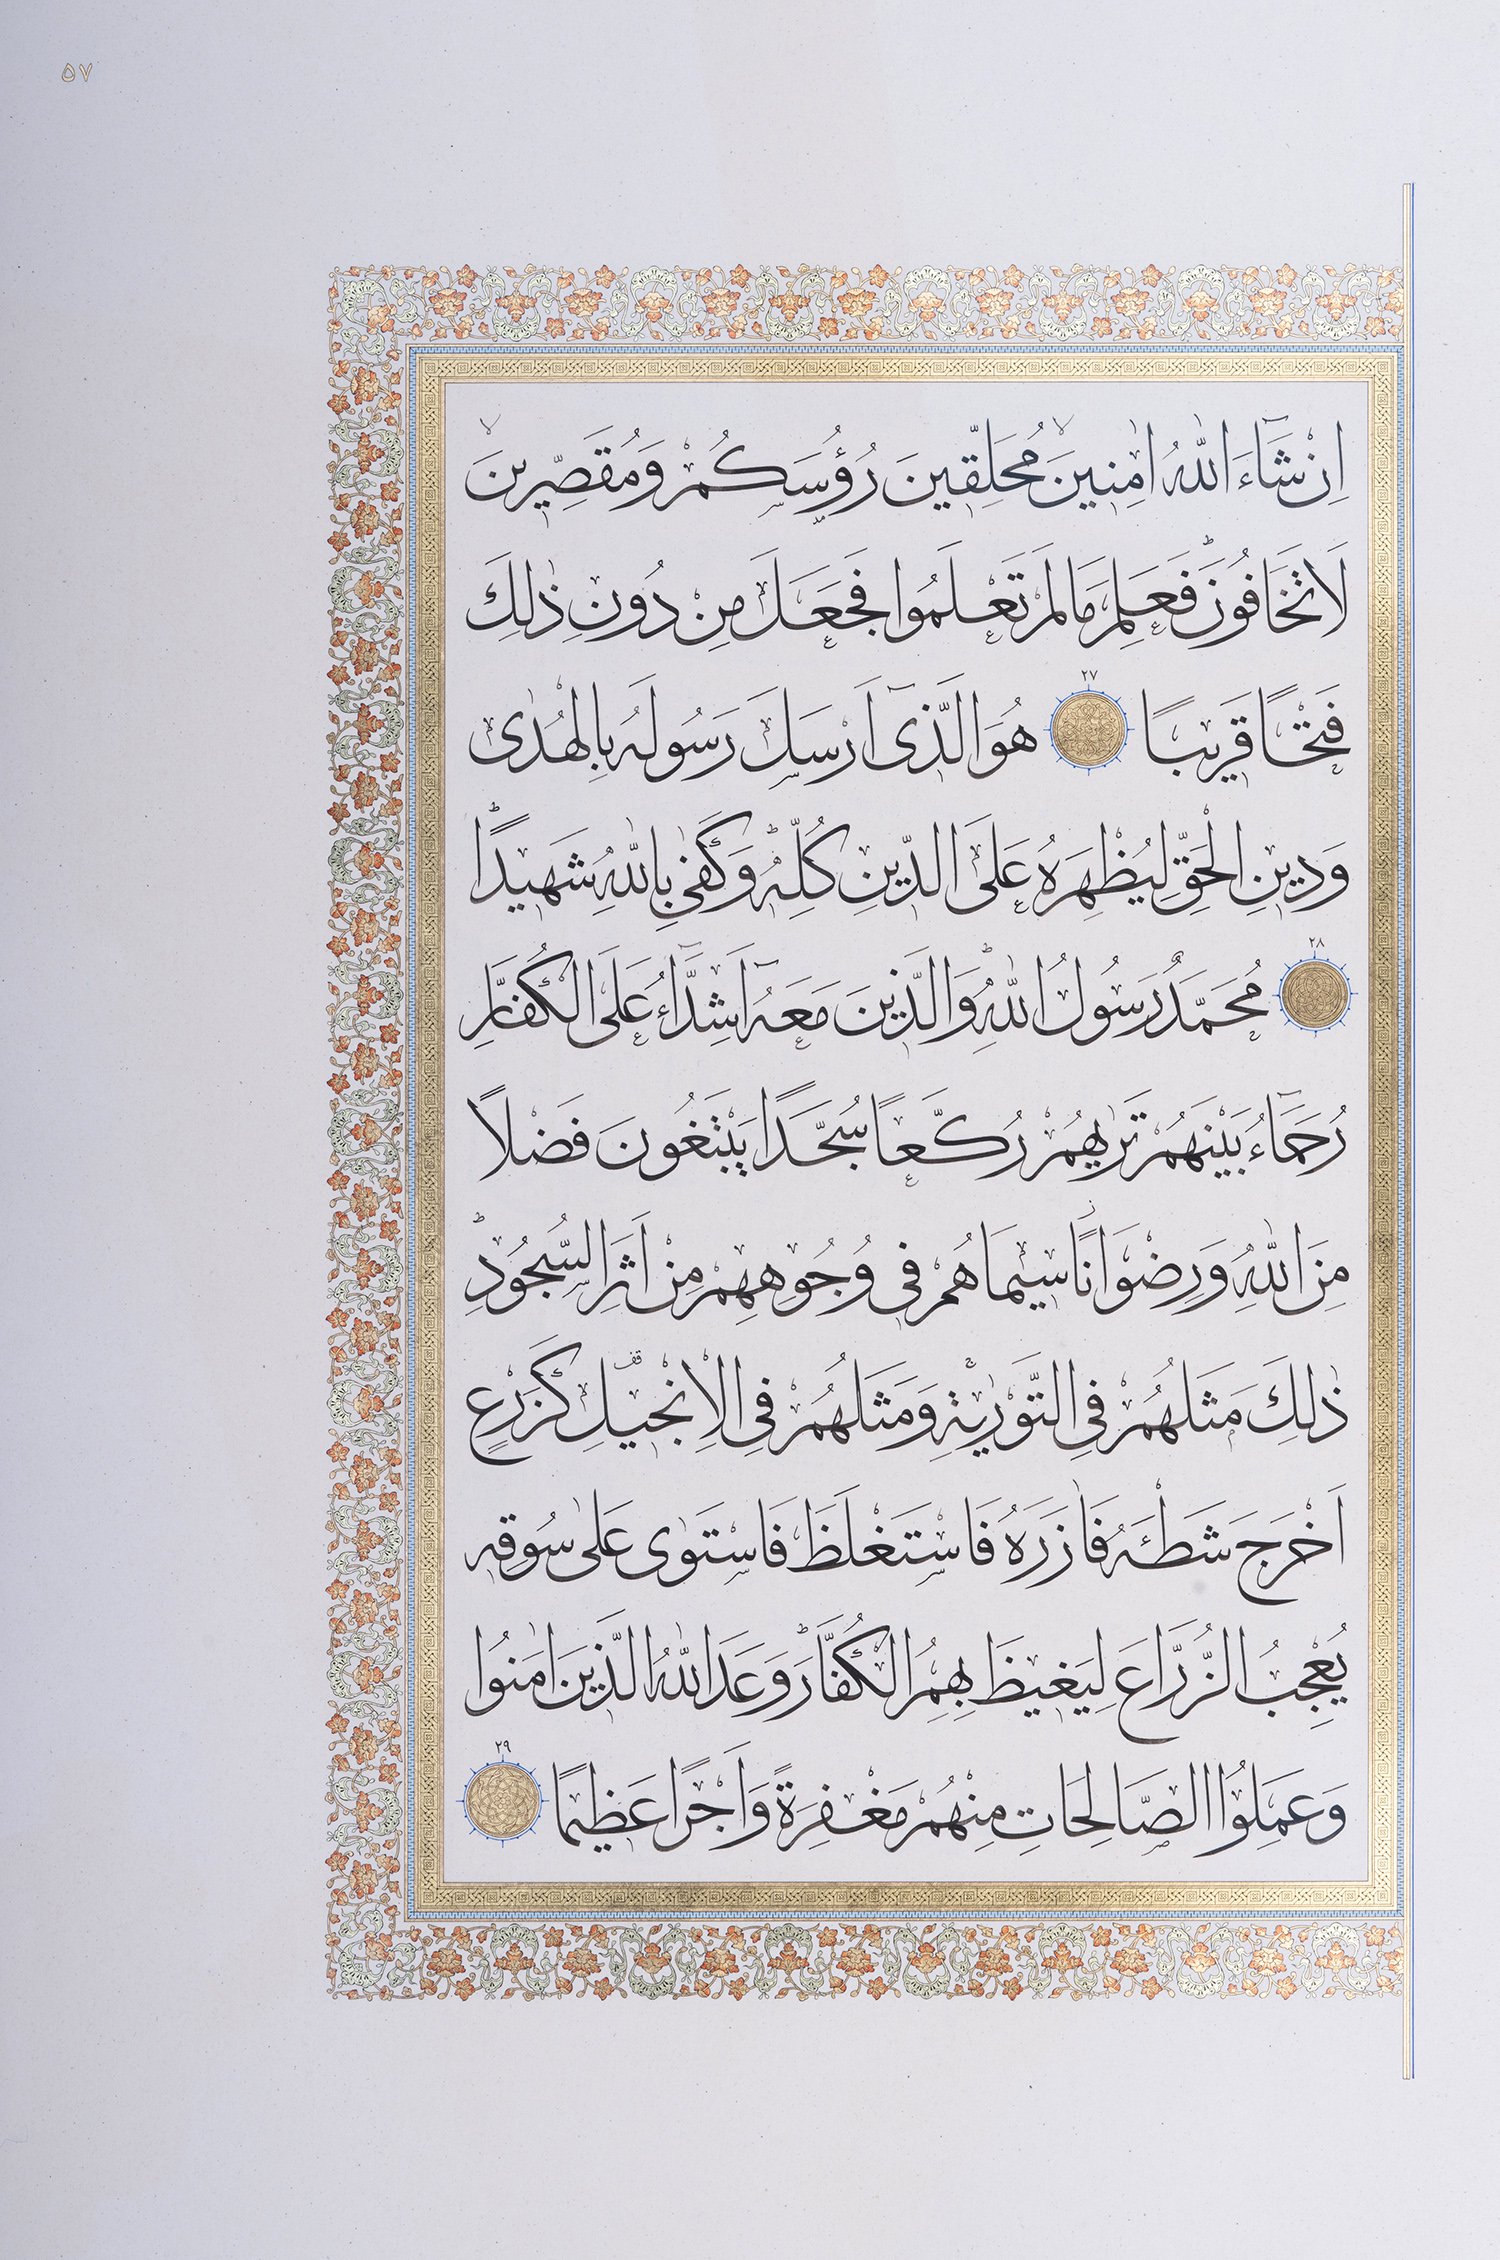 ٥٧
اِنْ شَٓاءَ اللّٰهُ اٰمِنِينَ مُحَلِّقِينَ رُؤُسَكُمْ وَمُقَصِّرِينَ
لَا تَخَافُونَ فَعَلِمَ مَا لَمْ تَعْلَمُوا فَجَعَلَ مِنْ دُونِ ذٰلِكَ
فَتْحًا قَرِيبًا ٢٧ هُوَ الَّذٓى اَرْسَلَ رَسُولَهُ بِالْهُدٰى
وَدِينِ الْحَقِّ لِيُظْهِرَهُ عَلَى الدِّينِ كُلِّهٖ وَكَفٰى بِاللّٰهِ شَهِيدًا
٢٨ مُحَمَّدٌ رَسُولُ اللّٰهِ وَالَّذِينَ مَعَهُٓ اَشِدَّٓاءُ عَلَى الْكُفَّارِ
رُحَمَٓاءُ بَيْنَهُمْ تَرٰيهُمْ رُكَّعًا سُجَّدًا يَبْتَغُونَ فَضْلًا
مِنَ اللّٰهِ وَرِضْوَانًا سِيمَاهُمْ فِى وُجُوهِهِمْ مِنْ اَثَرِ السُّجُودِ
ذٰلِكَ مَثَلُهُمْ فِى التَّوْرٰيةِ وَمَثَلُهُمْ فِى الْاِنْجِيلِ كَزَرْعٍ
اَخْرَجَ شَطْـَٔهُ فَاٰزَرَهُ فَاسْتَغْلَظَ فَاسْتَوٰى عَلٰى سُوقِهٖ
يُعْجِبُ الزُّرَّاعَ لِيَغِيظَ بِهِمُ الْكُفَّارَ وَعَدَ اللّٰهُ الَّذِينَ اٰمَنُوا
وَعَمِلُوا الصَّالِحَاتِ مِنْهُمْ مَغْفِرَةً وَاَجْرًا عَظِيمًا ٢٩